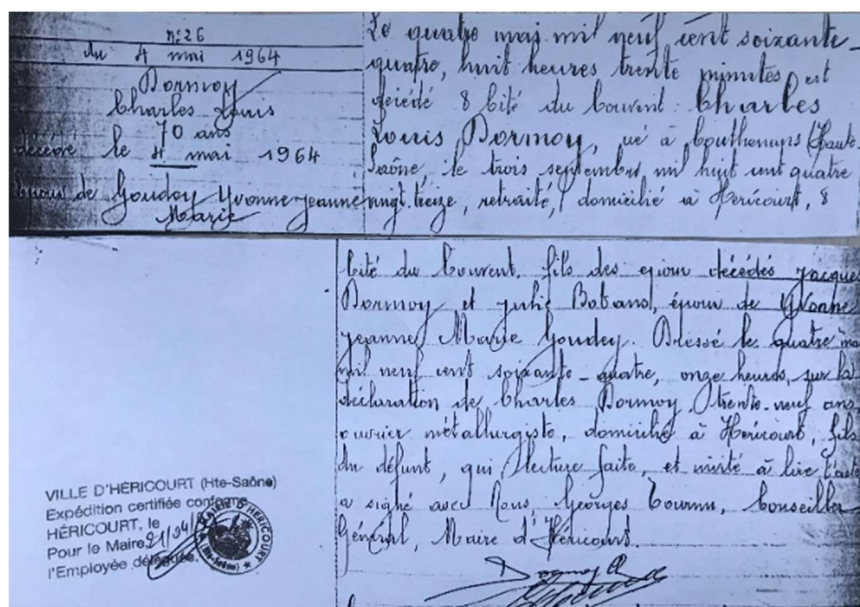 n: 26
du 4 mai 1964
Dormoy
Charles Louis
70 ans
décédé le 4 mai 1964
époux de Goudey Yvonne Jeanne
Marie
Le quatre mai mil neuf cent soixante-
quatre, huit heures trente minutes est
décédé 8 Cité du Couvent: Charles
Louis, Dormoy, né à Couthenans (Haute-
Saône, le trois septembre, mil huit cent quatre
vingt-treize, retraité, domicilié à Héricourt, 8
Cité du Couvent, fils des époux décédés Jacques
Dormoy et Julie, époux de Yvonne
Jeanne Marie Goudey. Dressé le quatre mai
mil neuf cent soixante-quatre, onze heures, sur la
déclaration de Charles Dormoy, trente-neuf ans,
ouvrier métallurgiste, domicilié à Héricourt, fils
du défunt, qui lecture faite, et invité à lire l'acte
a signé avec Nous, Georges, Conseiller
Général, Maire d'Héricourt.
Dormoy
VILLE D'HÉRICOURT (Hte-Saône)
Expédition certifiée conforme
HÉRICOURT, le
Pour le Maire, 21/04/
l'Employée déléguée,
MAIRIE D'HÉRICOURT
(Hte-Saône)